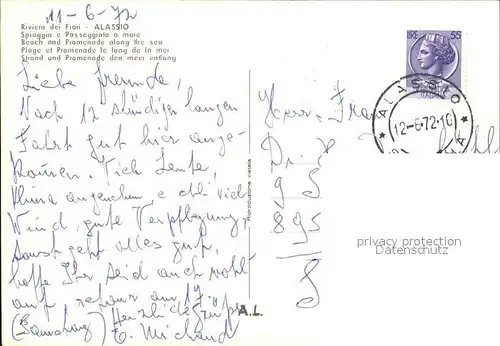 11-6-72
Riviera dei Fiori - ALASSIO
Spiaggia e Passeggiata a mare
Beach and Promenade along the sea
Plage et Promenade le long de la mer
Strand und Promenade den meer entlang
Liebe Freunde,
Nach 12 stündiger langen
Fahrt gut hier ange-
kommen. Viele Leute,
Klima angenehm viel
Wind, gute Verpflegung,
sonst geht alles gut,
hoffe Ihr seid auch wohl-
auf retour am 17
(Samstag) Herzliche Grüße
E.
A.L.
Riproduzione vietata
LIRE 55
ITALIA
ALASSIO
12-6-72.16
Herr Frau
Dr.
privacy protection
DATENSCHUTZ